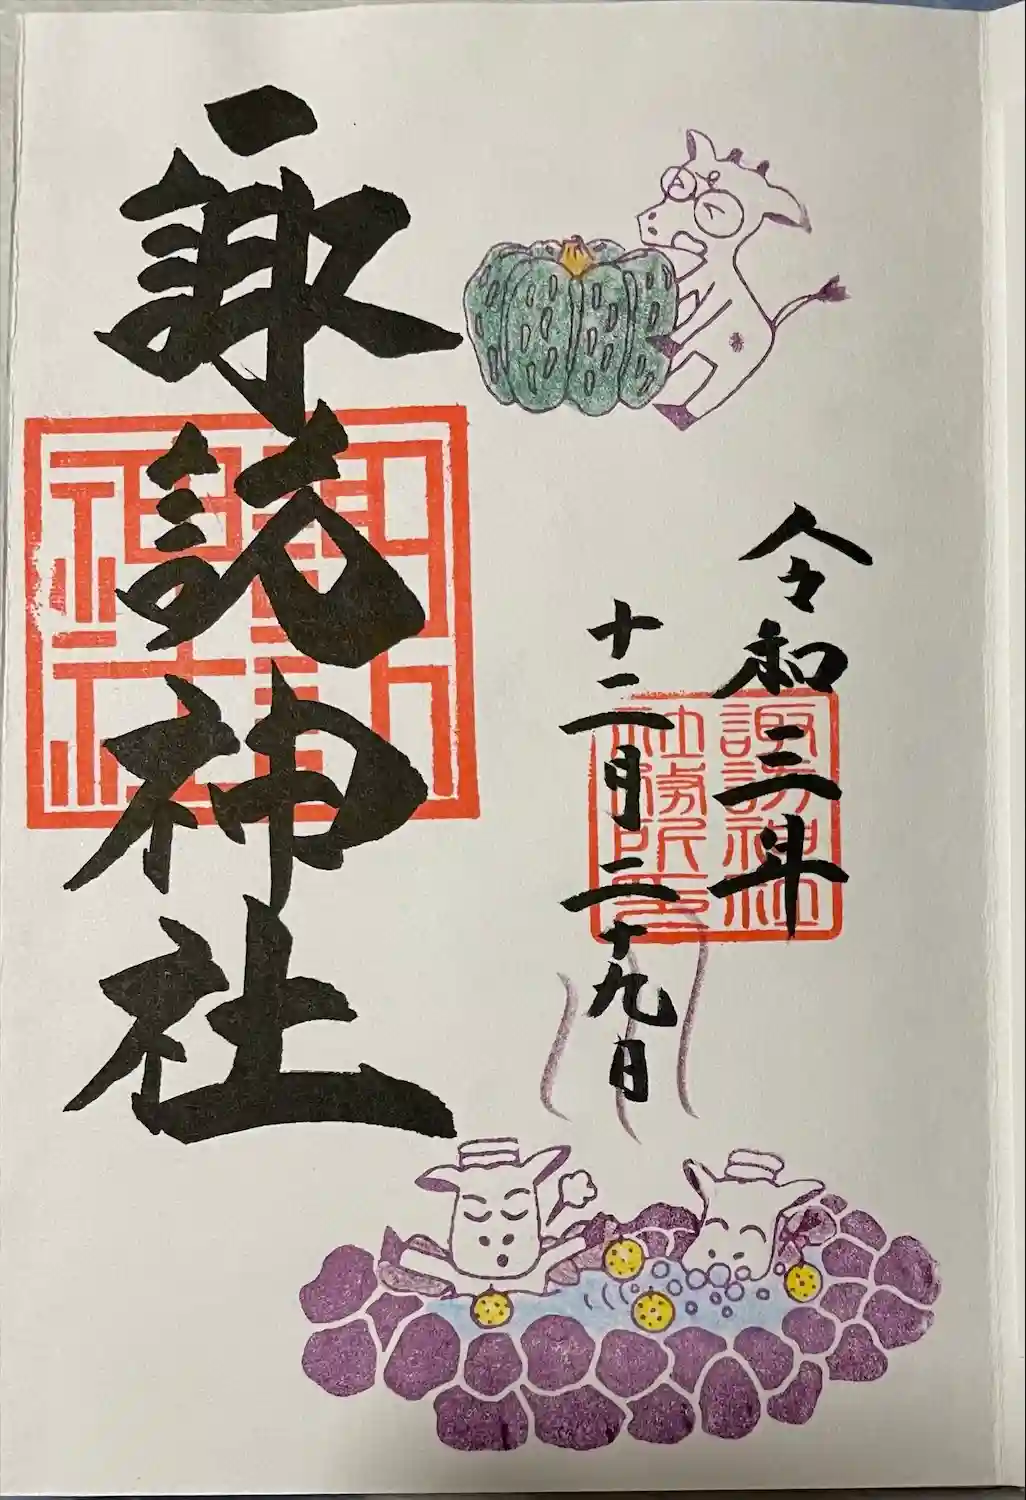 令和三年
十二月二十九日
諏訪神社
諏訪神社
社務所印